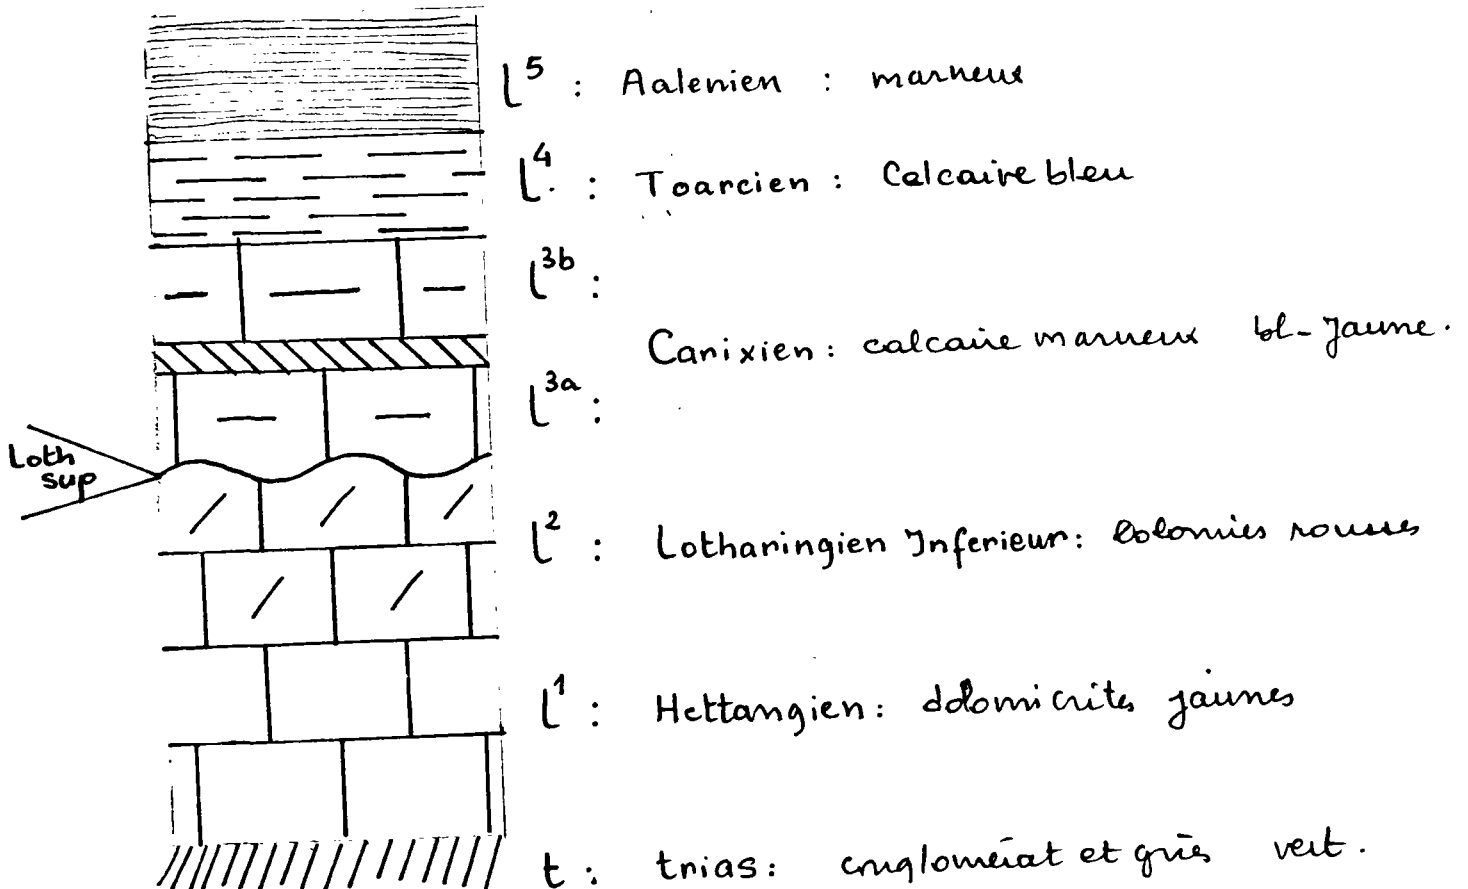 l⁵ : Aalenien : marneux
l⁴ : Toarcien : Calcaire bleu
l³ᵇ :
Carixien : calcaire marneux bl-Jaune.
l³ᵃ :
Loth
sup
l² : Lotharingien Inferieur : Dolomies rousses
l¹ : Hettangien : dolomicrites jaunes
t : trias : conglomérat et grès vert.